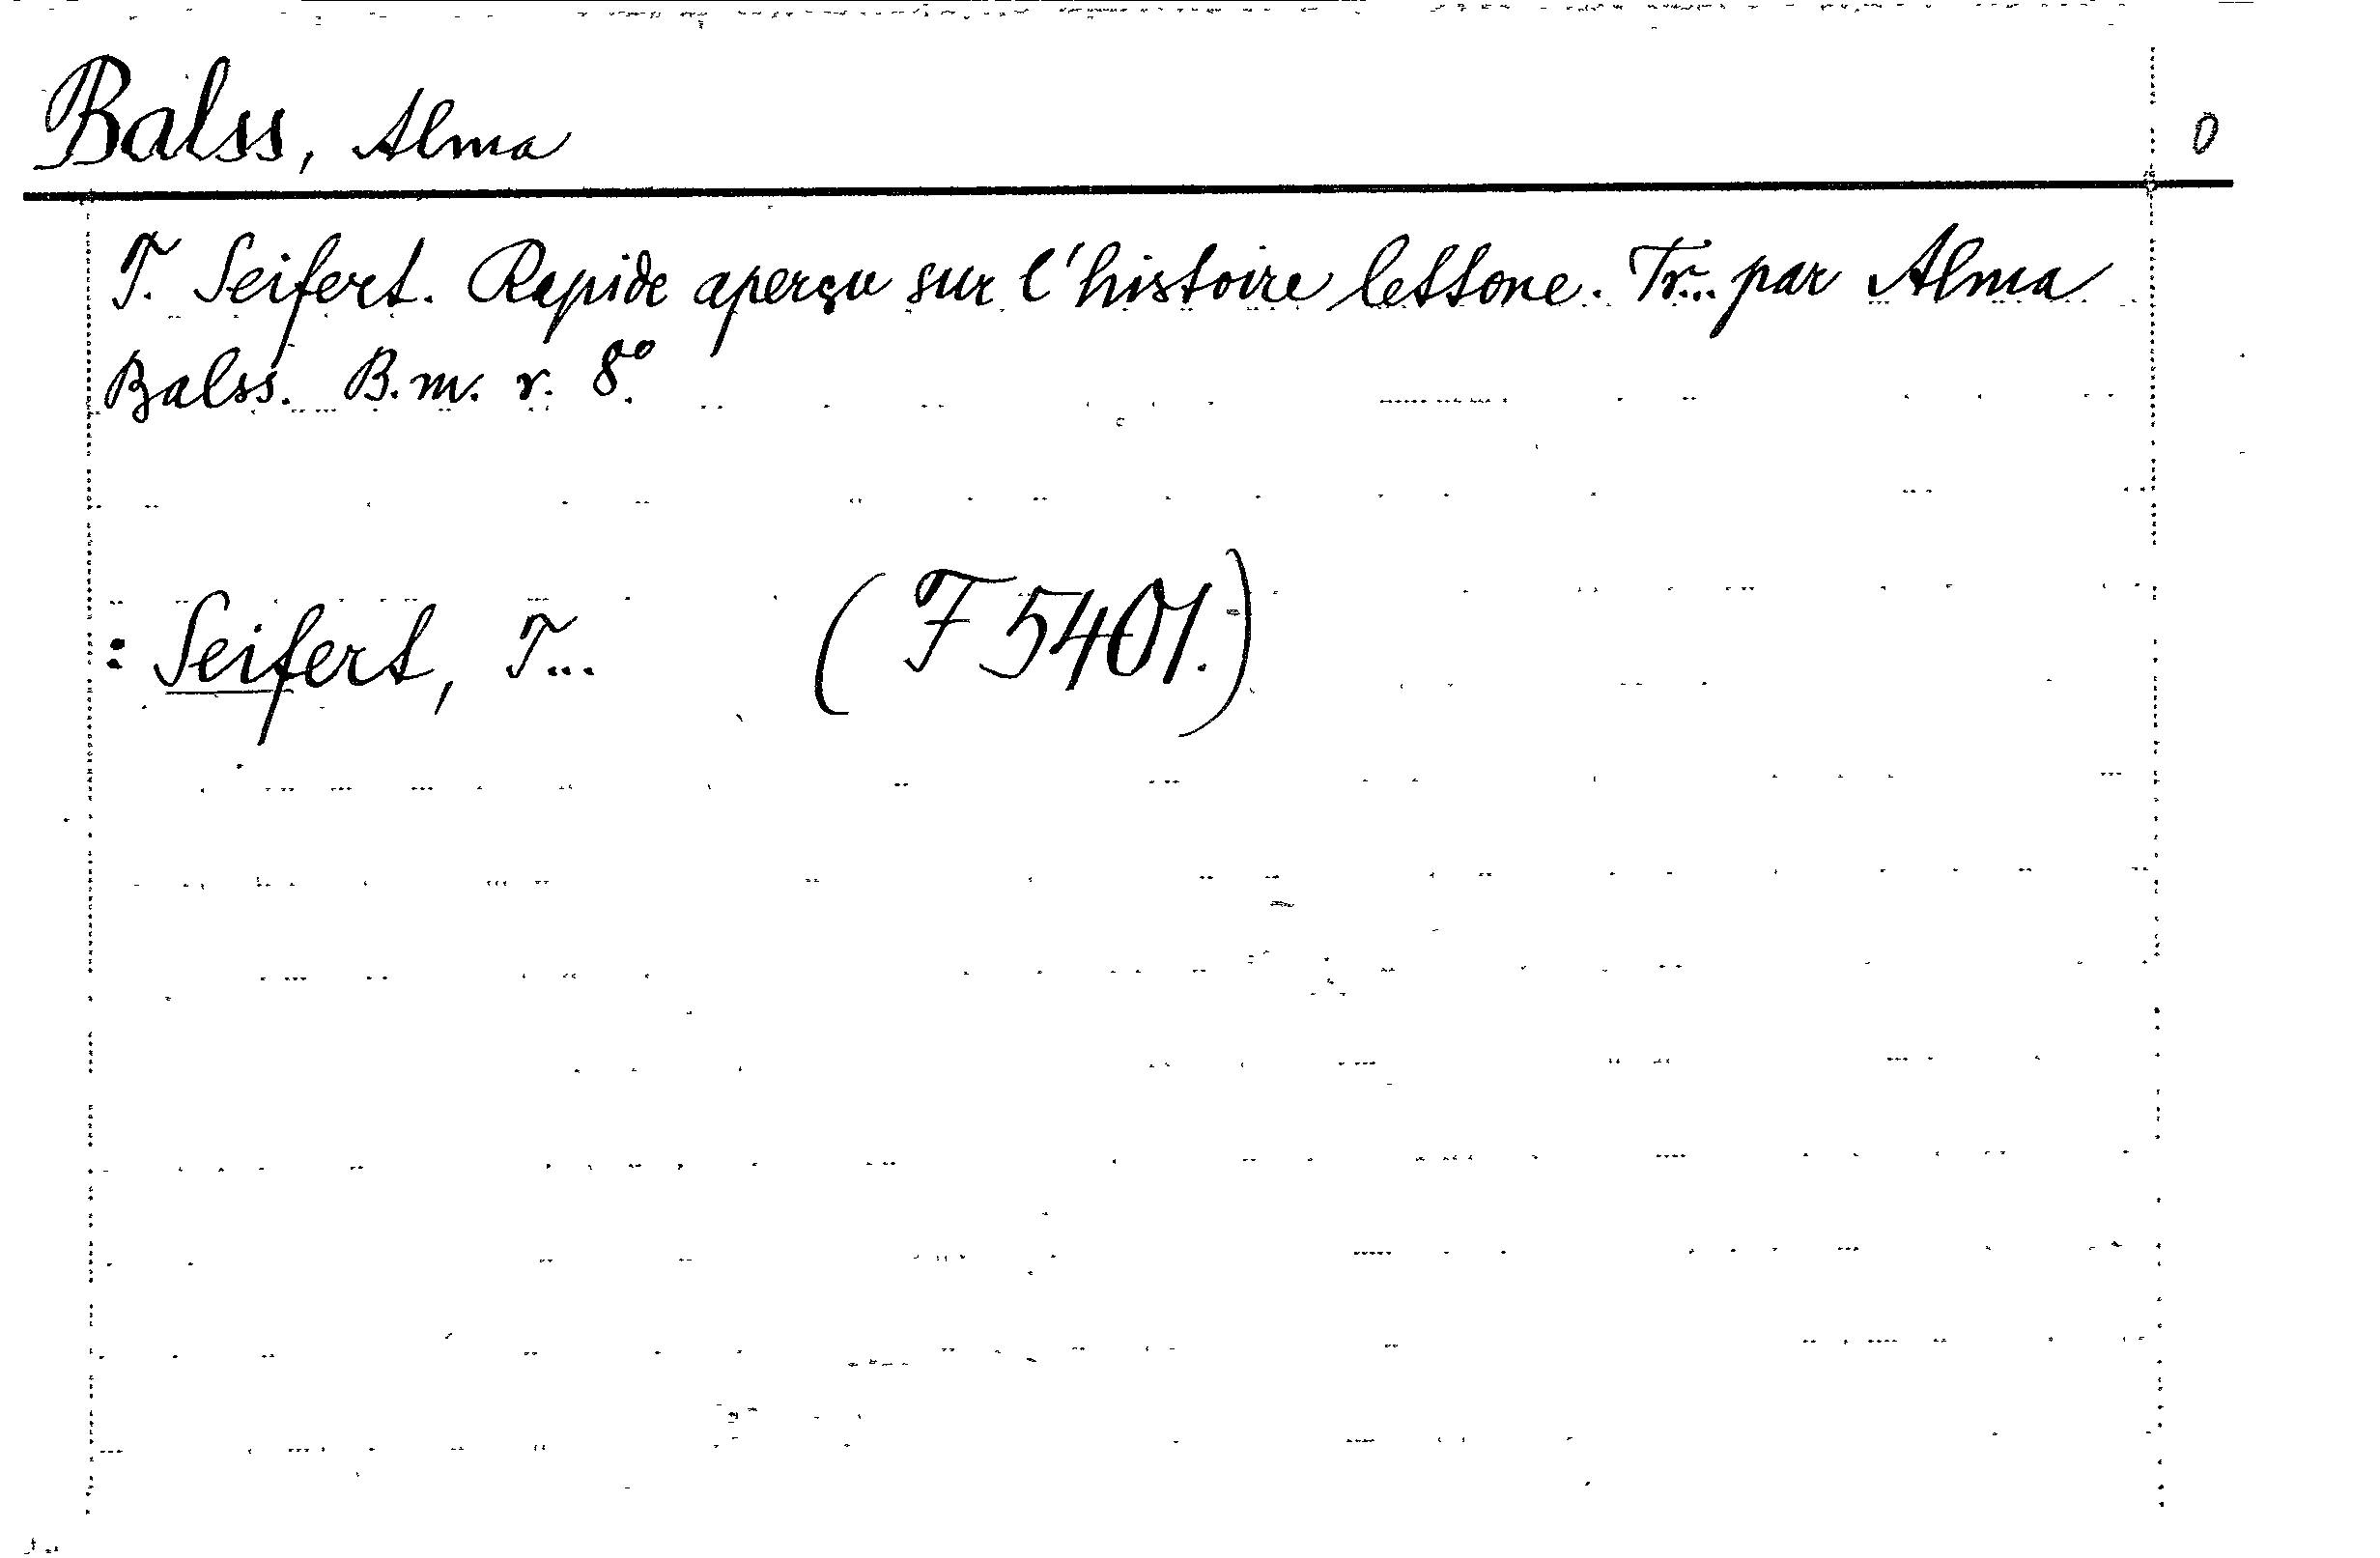 Balss, Alma 0
T. Seifert. Rapide aperçu sur l'histoire lettone. Tr... par Alma
Balss. B.m. r. 8°.
: Seifert, T... (F 5401.)